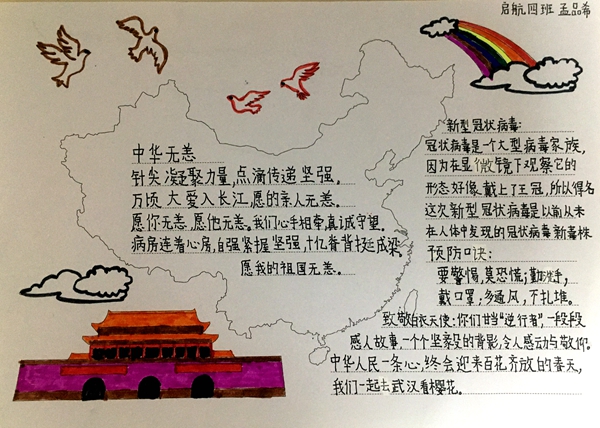 启航四班 孟品希
中华无恙
针尖凝聚力量,点滴传递坚强。
万顷大爱入长江,愿的亲人无恙。
愿你无恙,愿他无恙。我们心手相牵,真诚守望。
病房连着心房,自强紧握坚强,十亿脊背挺成梁,
愿我的祖国无恙。
新型冠状病毒:
冠状病毒是一个大型病毒家族,
因为在显微镜下观察它的
形态好像戴上了王冠,所以得名
这次新型冠状病毒是以前从未
在人体中发现的冠状病毒新毒株
预防口诀:
要警惕,莫恐慌;勤洗手,
戴口罩,多通风,不扎堆。
致敬白衣天使:你们甘当"逆行者",一段段
感人故事,一个个坚毅的背影,令人感动与敬仰。
中华人民一条心,终会迎来百花齐放的春天,
我们一起去武汉看樱花。